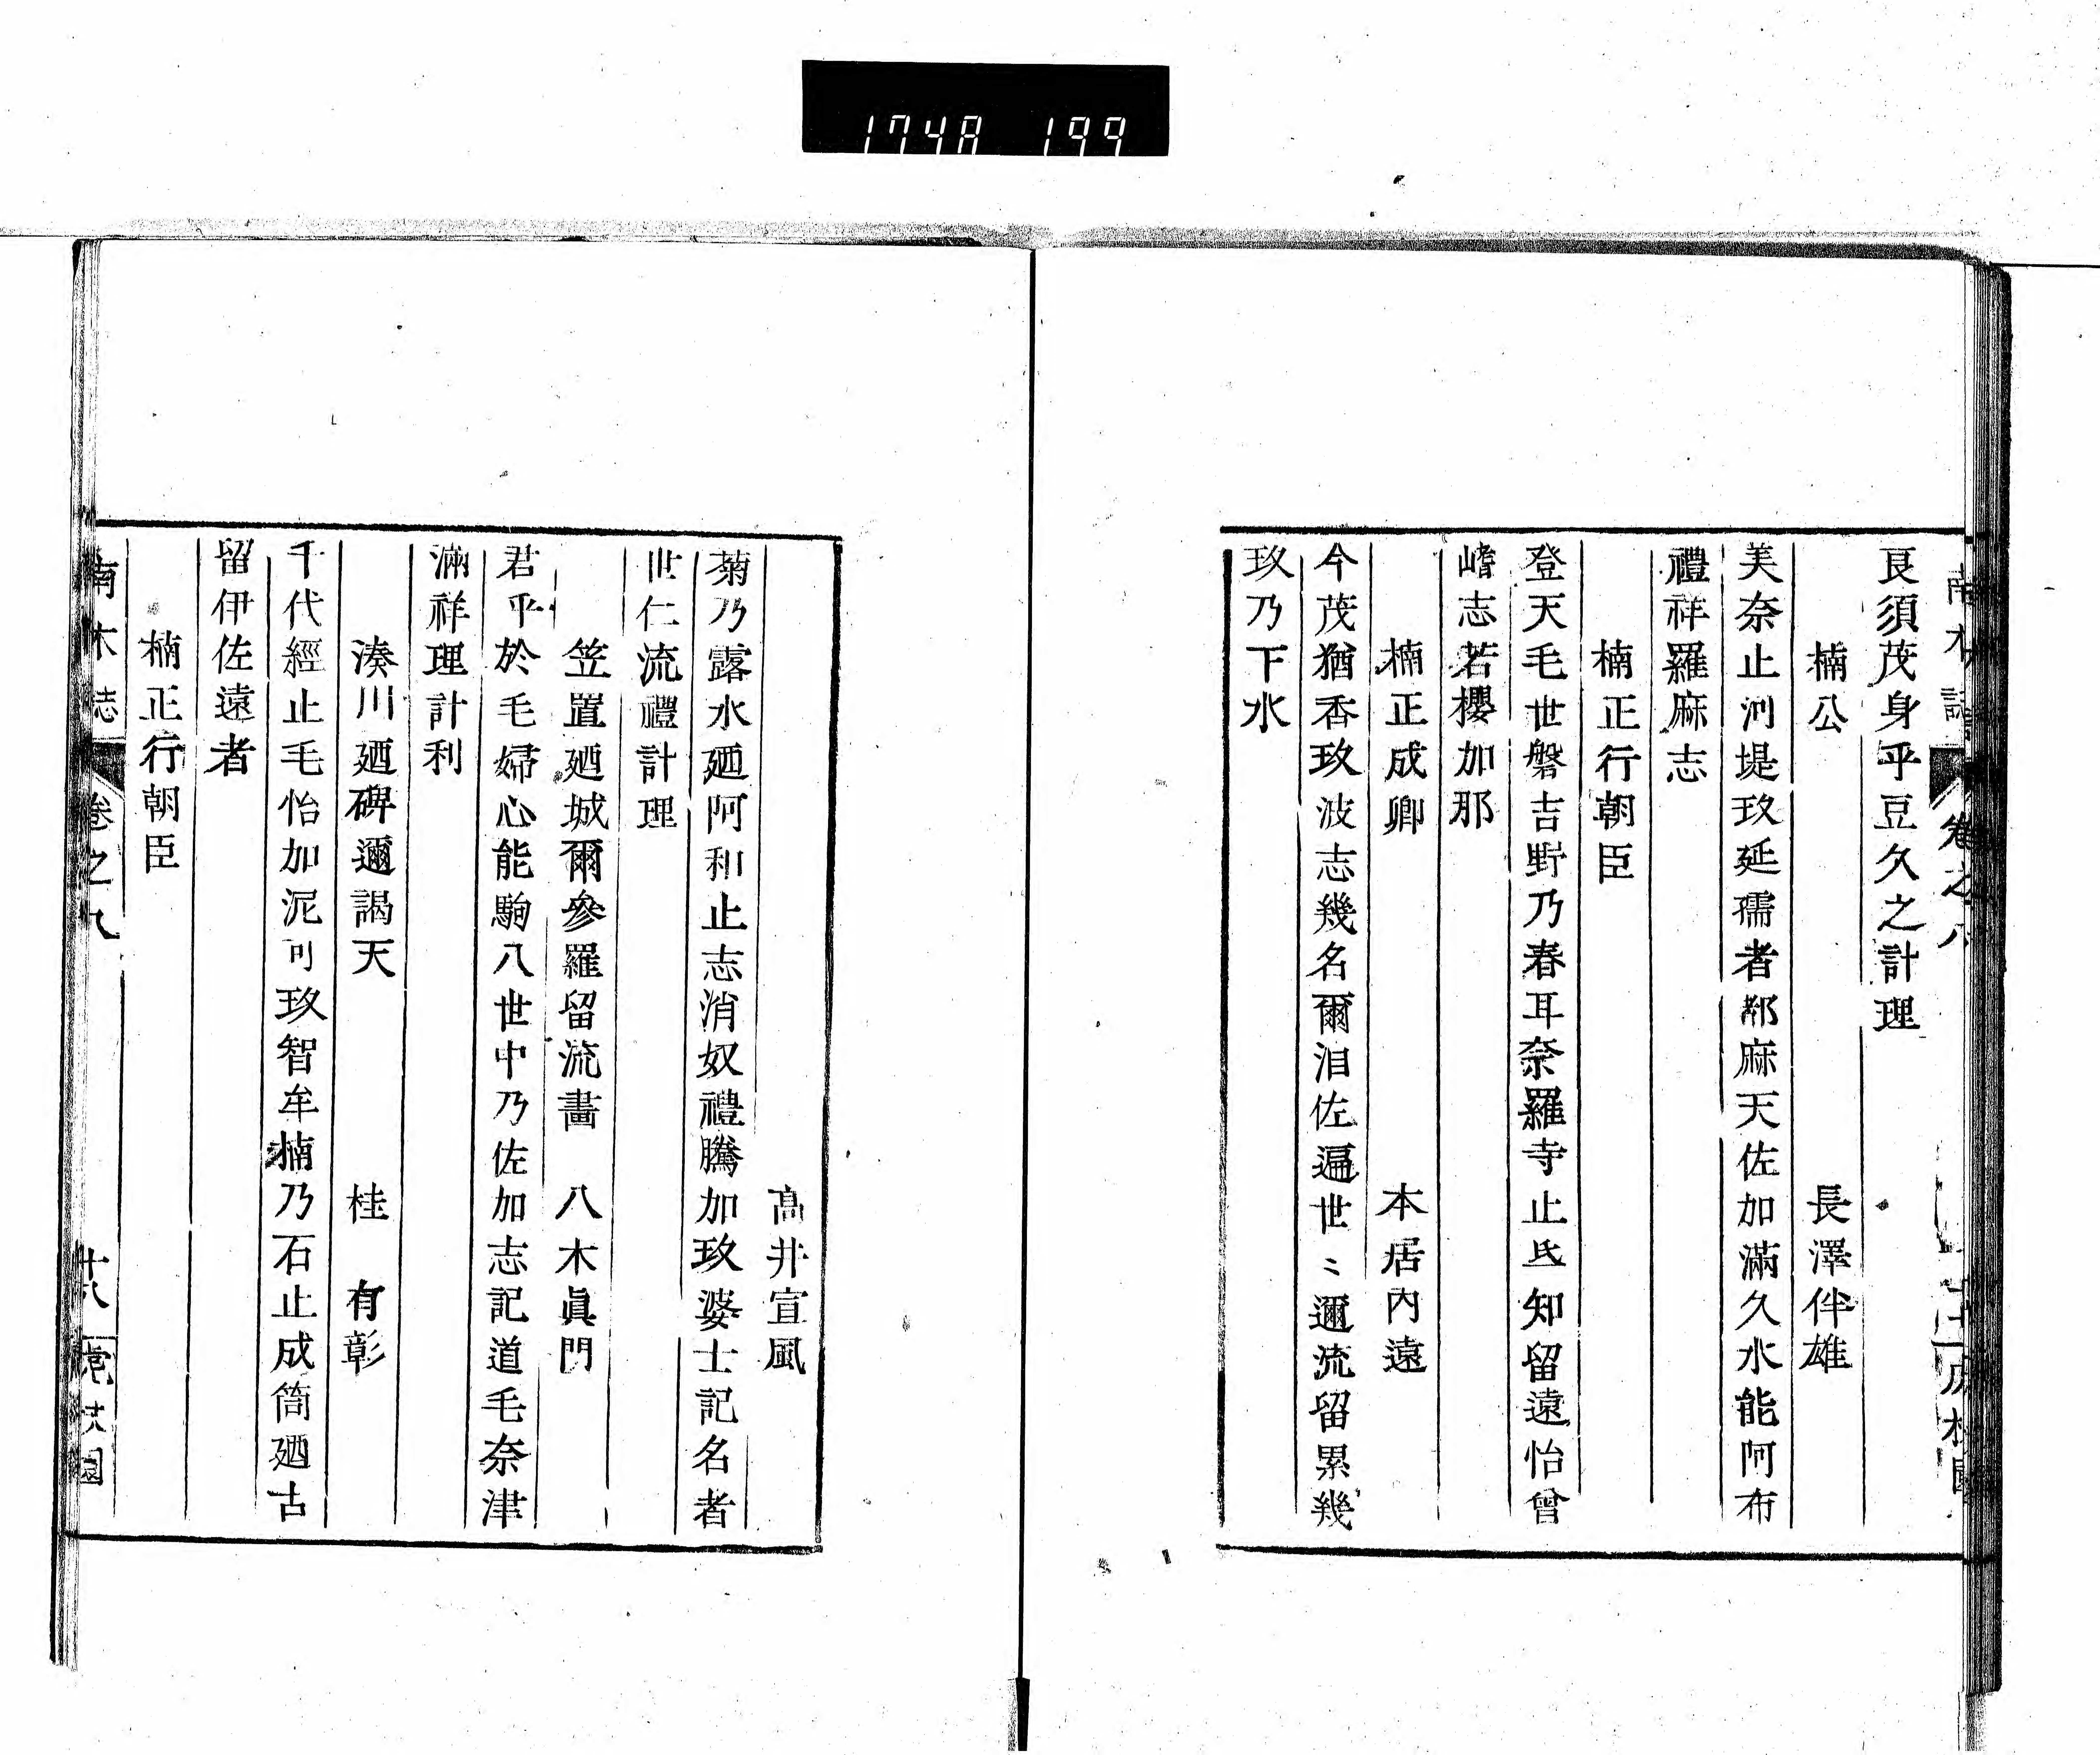 1748 199
南木誌 卷之八
良須茂身乎豆久之計理
楠公 長澤伴雄
美奈止河堤玖延孺者都麻天佐加滿久水能阿布
禮祥羅麻志
楠正行朝臣
登天毛世磐吉野乃春耳奈羅寺止氐知留遠怡曾
嶜志若櫻加那
楠正成卿 本居內遠
今茂猶香玖波志幾名爾泪佐遍世〻邇流留累幾
玖乃下水
髙井宣風
菊乃露水廼阿和止志消奴禮騰加玖婆士記名者
世仁流禮計理
笠置廼城爾參羅留流畫 八木眞門
君乎於毛婦心能駒八世中乃佐加志記道毛奈津
滿祥理計利
湊川廼碑邇謁天 桂 有彰
千代經止毛怡加泥可玖智牟楠乃石止成筒廼古
留伊佐遠者
楠正行朝臣
南木誌 卷之八 廿八